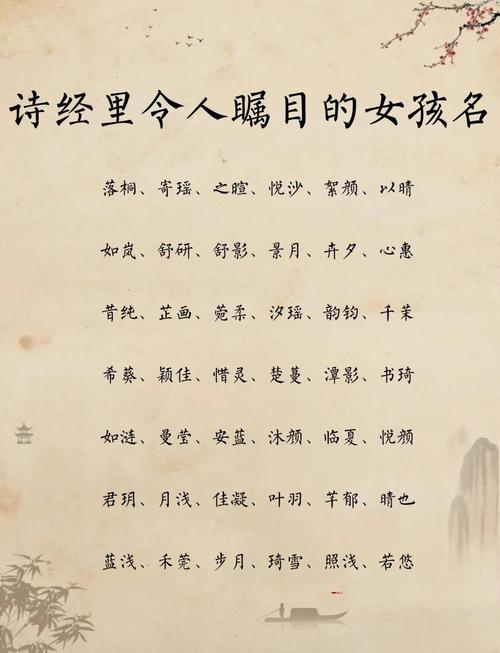 诗经里令人瞩目的女孩名
落桐、寄瑶、之暄、悦沙、絮颜、以晴
如岚、舒研、舒影、景月、卉夕、心惠
昔纯、芷画、菀柔、汐瑶、韵钧、千茉
希葵、颖佳、惜灵、楚蔓、潭影、书琦
如涟、曼莹、安蓝、沐颜、临夏、悦颜
君玥、月浅、佳凝、叶羽、芊郁、晴也
蓝浅、禾莞、步月、琦雪、照浅、若悠